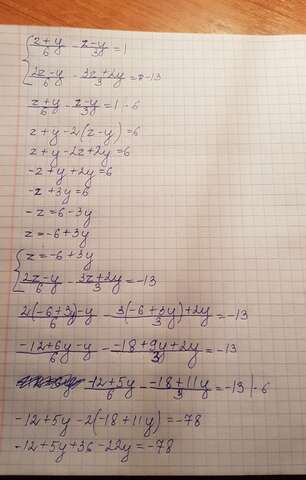 { z+y/6 - z-y/3 = 1
2z-y/6 - 3z+2y/3 = -13
z+y/6 - z-y/3 = 1 | ·6
z+y-2(z-y)=6
z+y-2z+2y=6
-z+y+2y=6
-z+3y=6
-z=6-3y
z=-6+3y
{ z=-6+3y
2z-y/6 - 3z+2y/3 = -13
2(-6+3)-y/6 - 3(-6+3y)+2y/3 = -13
-12+6y-y/6 - -18+9y+2y/3 = -13
-12+5y/6 - -18+11y/3 = -13 | ·6
-12+5y-2(-18+11y)=-78
-12+5y+36-22y=-78